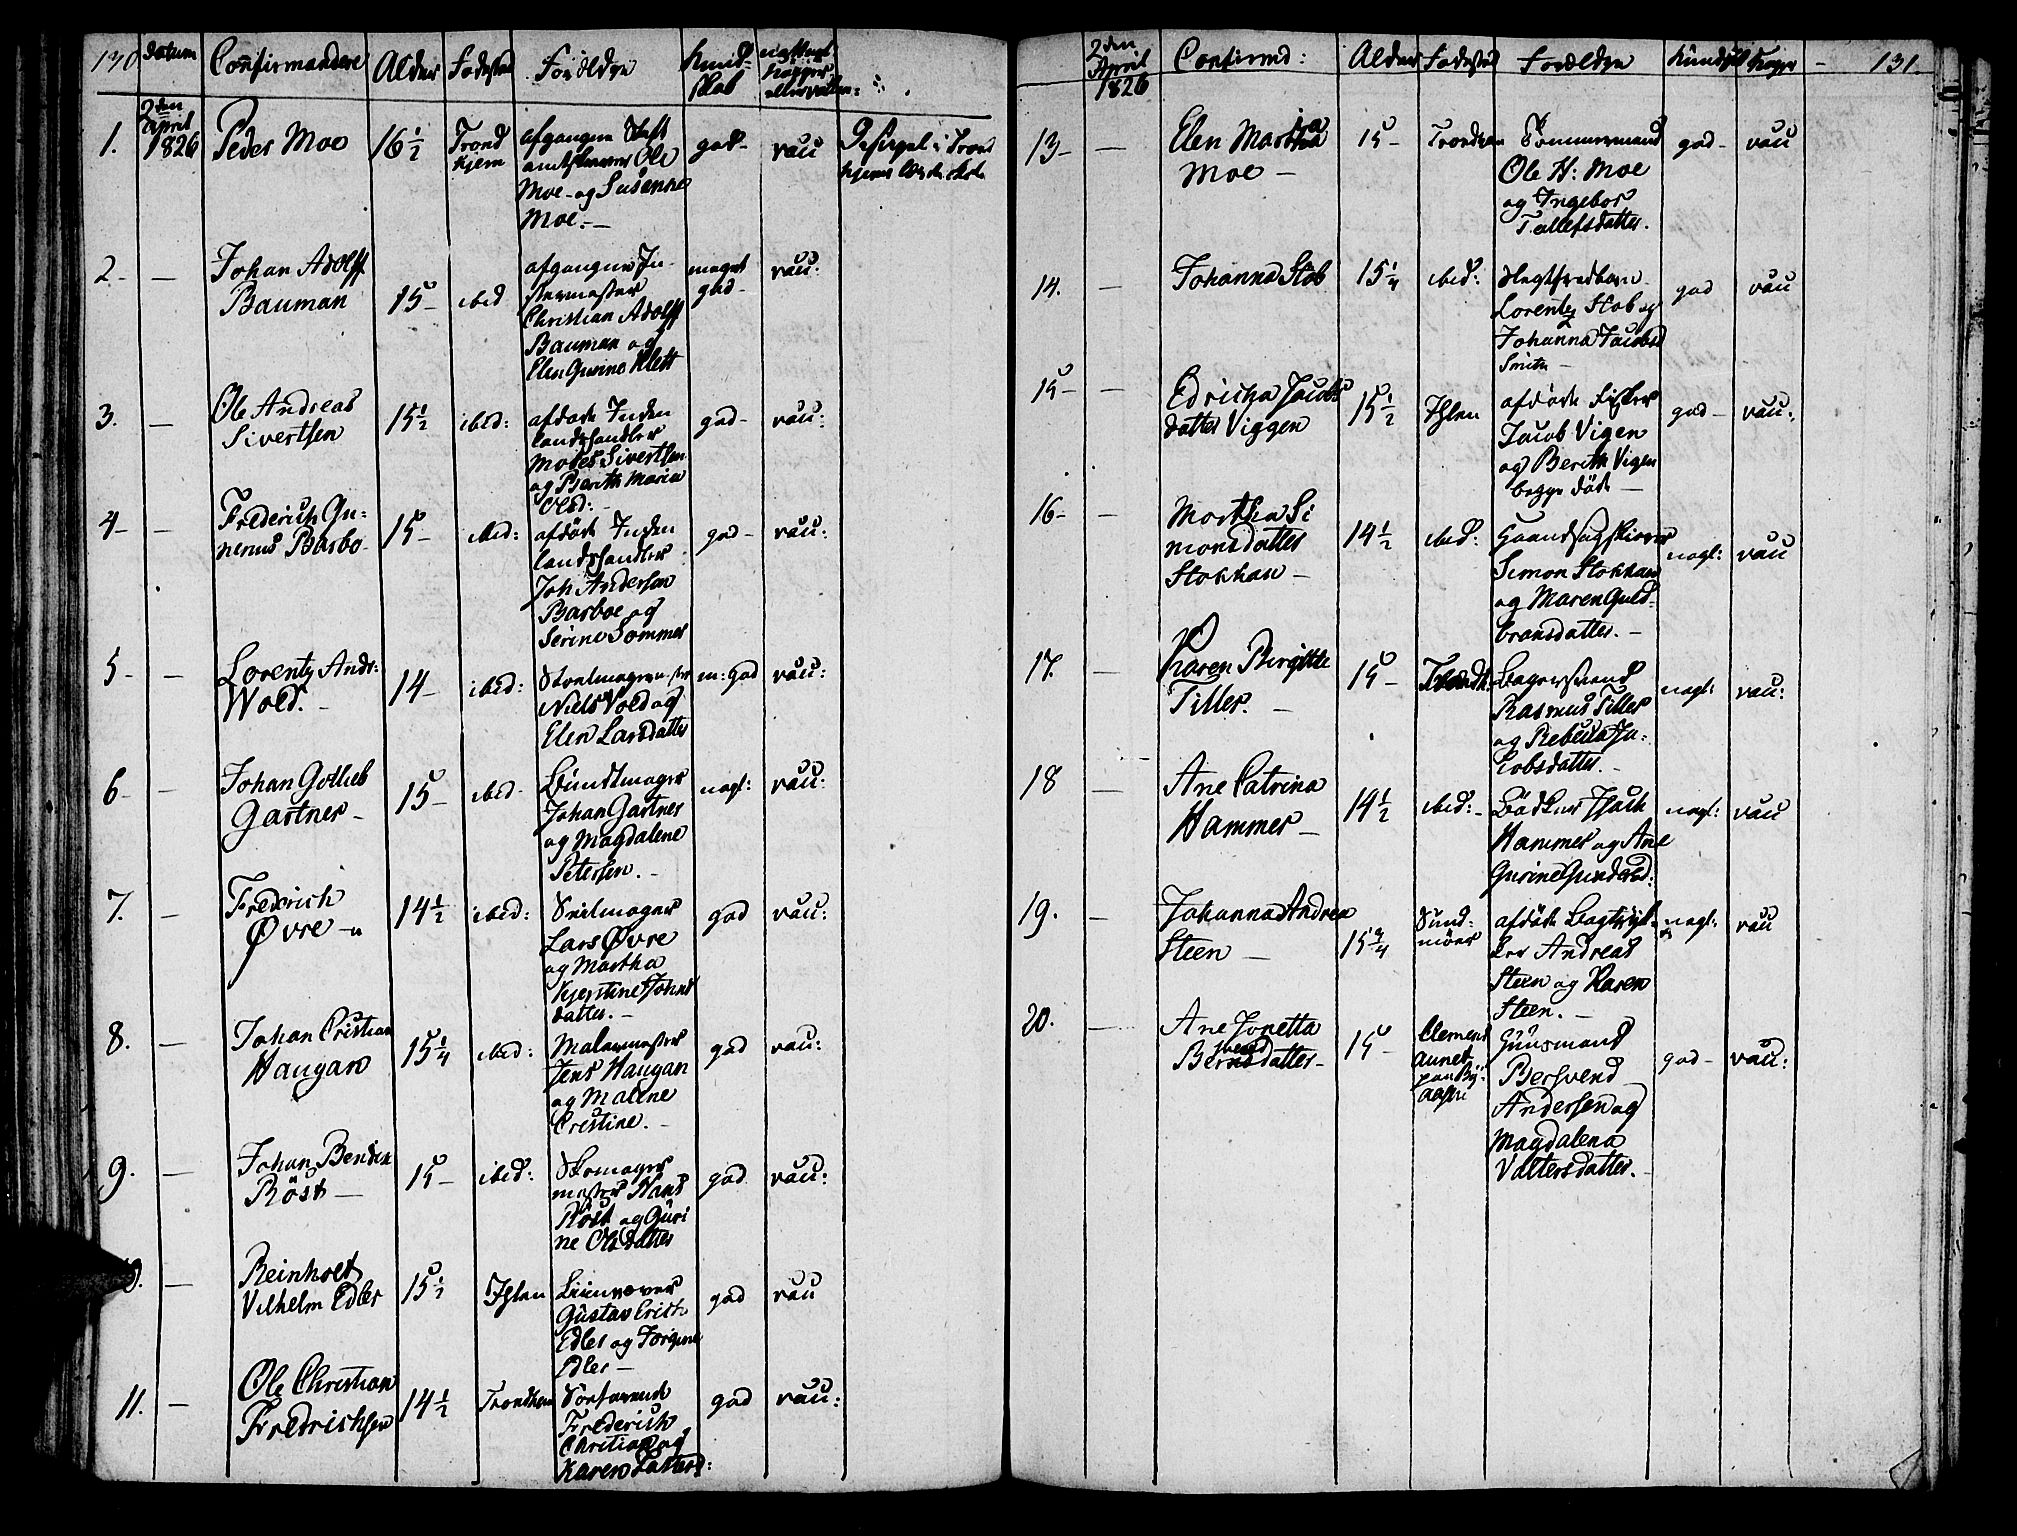 130 datum Confirmandere Alder Fødested Forældre Kund-
skab
eller vacc:
2den April 1826
1. Peder Moe 16 1/2 Trond
hjem afgangne Stift
amtskriver Ole
Moe og Susanne
Moe.
god vacc
2 - Johan Adolff
Bauman 15 ibid afgangne In-
Christian Adolff
Bauman og
Elen Gurine Klett
meget
god vacc:
3. - Ole Andreas
Sivertsen 15 1/2 ibid: afdøde Inden
landshandler
Moses Sivertsen
og Berith Maria
Olsd:
god vacc:
4 - Frederich Gu-
nerus Barbo 15 ibid: afdøde Inden
landshandler
Joh Andersen
Barboe og
Serine Sommer
god vacc:
5 - Lorentz Andr:
Wold. 14 ibid:
Niels Vold og
Elen Larsdatter
m: god vacc:
6 - Johan Gotlieb
Gartner 15 ibid Bundtmager
Johan Gartner
og Magdalene
Petersen.
nogl: vacc:
7. - Fredrich
Øvre 14 1/2 ibid: Seilmager
Lars Øvre
og Martha
Kjerstine Johns
datter.
god vacc:
8. - Johan Cristian
Haugan 15 1/4 ibid: Malermester
Jens Haugan
og Malene
Cristine.
god vacc:
9. - Johan Bendix
Röst 15 ibid: Skomager
mester Hans
Röst og Guri
ne Olsdatter
god vacc:
10. - Reinholt
Vilhelm Edler 15 1/2 Ihlen Linnvever
Gustav Erich
Edler og Jørgine
Edler
god vacc
11. - Ole Christian
Fredrichsen 14 1/2 Trondhem
Frederich
Christian og
Karen
god vacc:
2den April 1826 Confirmd: Alder Fødested Forældre Kundsk Kopp 131.
13 - Elen Martha
Moe 15 Trondhem Tømmermand
Ole H: Moe
og Ingebor
Tollefsdatter.
god vacc
14. - Johanna Stob 15 1/4 ibid:
Lorentz Stob og
Johanna Jacobs
Smith
god vacc
15 - Edricka Jacobs
datter Viggen 15 1/2 Ihlen afdøde Fisker
Jacob Vigen
og Berith Vigen
begge døde
god vacc:
16 - Martha Si
monsdatter
Stokkan 14 1/2 ibid:
Simon Stokkan
og Maren Guld-
bransdatter.
nogl: vacc
17. - Karen Birgitte
Tiller. 15 Trondh:
Rasmus Tiller
og Rebecca Ja-
cobsdatter.
nogl: vacc:
18 - Ane Catrina
Hammer 14 1/2 ibid: Bødker Isach
Hammer og Ane
Gurine Gundersd:
nogl: vacc
19. - Johanna Andrea
Steen 15 3/4 Sund-
møer afdøde Bogtryk-
ker Andreas
Steen og Karen
Steen.
nogl: vacc
20. - Ane Jonetta
datter 15 Clement
aunet
paa By-
aasen Huusmand
Bersvend
Andersen og
Magdalena
Valtersdatter.
god vacc: